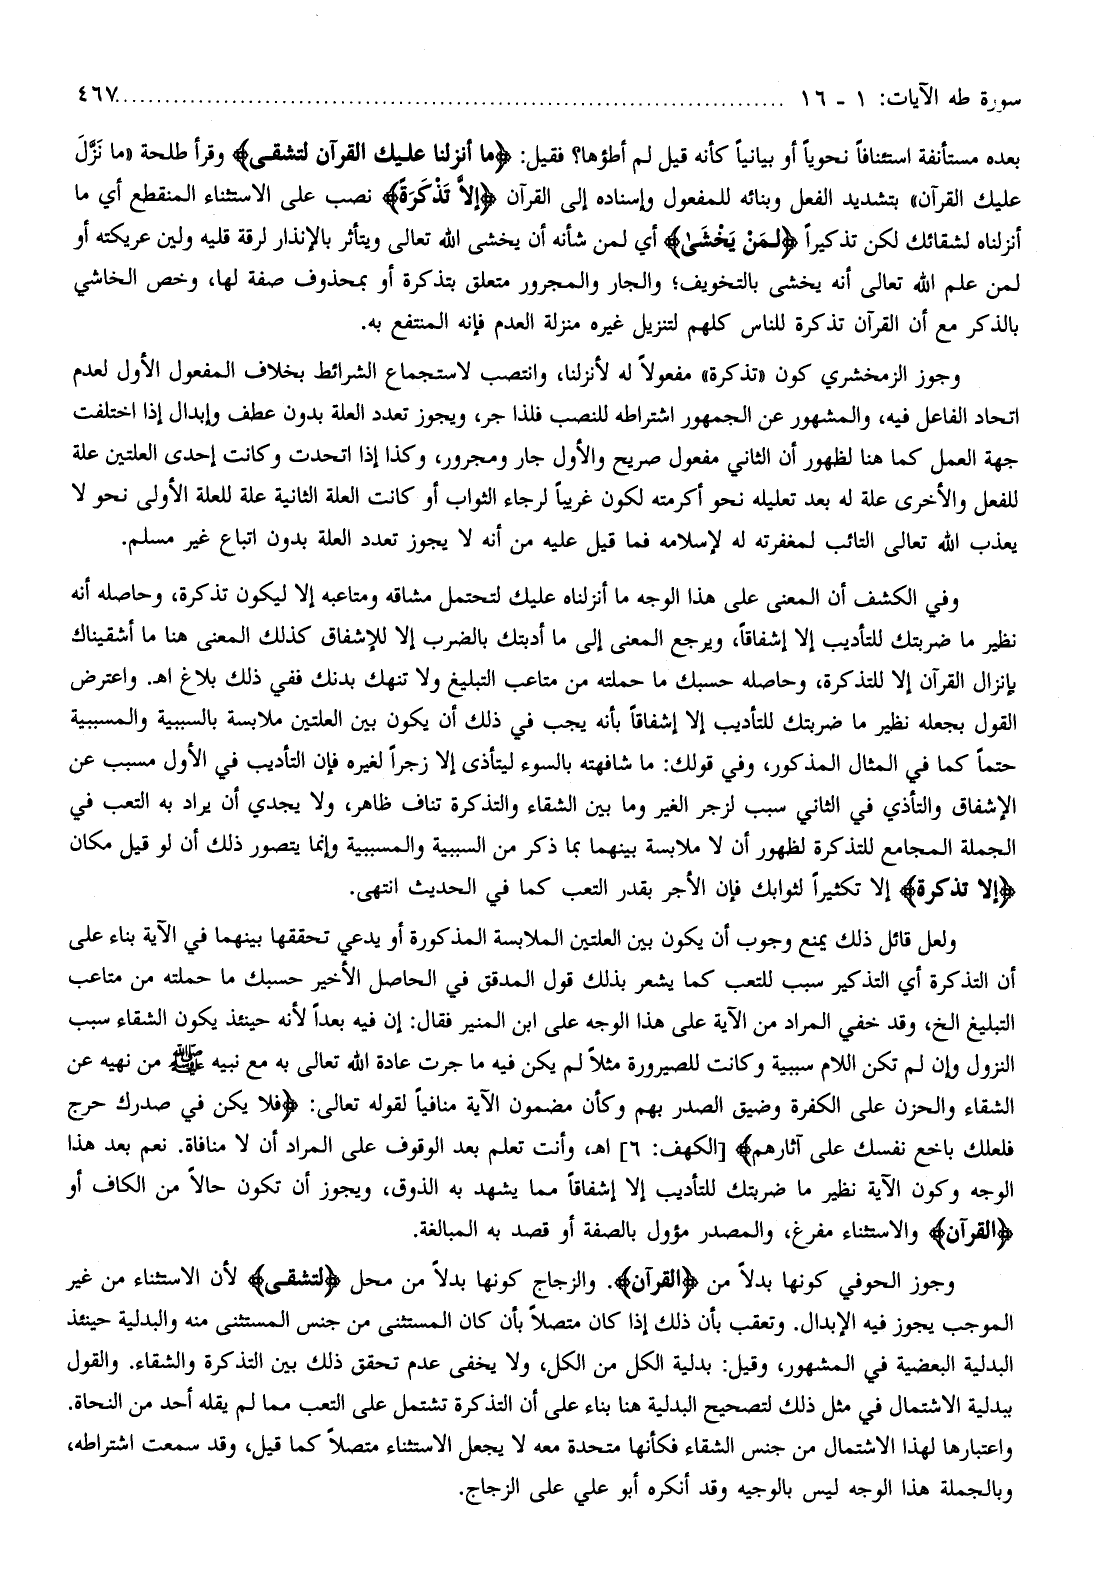 سورة طه الآيات: ١ - ١٦ ........................................................................ ٤٦٧
بعده مستأنفة استئنافاً نحوياً أو بيانياً كأنه قيل لم أطؤها؟ فقيل: ﴿ما أنزلنا عليك القرآن لتشقى﴾ وقرأ طلحة «ما نَزَّلَ
عليك القرآن» بتشديد الفعل وبنائه للمفعول وإسناده إلى القرآن ﴿إلاَّ تَذْكَرَةً﴾ نصب على الاستثناء المنقطع أي ما
أنزلناه لشقائك لكن تذكيراً ﴿لمَنْ يَخْشَىٰ﴾ أي لمن شأنه أن يخشى الله تعالى ويتأثر بالإنذار لرقة قلبه ولين عريكته أو
لمن علم الله تعالى أنه يخشى بالتخويف؛ والجار والمجرور متعلق بتذكرة أو بمحذوف صفة لها، وخص الخاشي
بالذكر مع أن القرآن تذكرة للناس كلهم لتنزيل غيره منزلة العدم فإنه المنتفع به.
وجوز الزمخشري كون «تذكرة» مفعولاً له لأنزلنا، وانتصب لاستجماع الشرائط بخلاف المفعول الأول لعدم
اتحاد الفاعل فيه، والمشهور عن الجمهور اشتراطه للنصب فلذا جر، ويجوز تعدد العلة بدون عطف وإبدال إذا اختلفت
جهة العمل كما هنا لظهور أن الثاني مفعول صريح والأول جار ومجرور، وكذا إذا اتحدت وكانت إحدى العلتين علة
للفعل والأخرى علة له بعد تعليله نحو أكرمته لكون غريباً لرجاء الثواب أو كانت العلة الثانية علة للعلة الأولى نحو لا
يعذب الله تعالى التائب لمغفرته له لإسلامه فما قيل عليه من أنه لا يجوز تعدد العلة بدون اتباع غير مسلم.
وفي الكشف أن المعنى على هذا الوجه ما أنزلناه عليك لتحتمل مشاقه ومتاعبه إلا ليكون تذكرة، وحاصله أنه
نظير ما ضربتك للتأديب إلا إشفاقاً، ويرجع المعنى إلى ما أدبتك بالضرب إلا للإشفاق كذلك المعنى هنا ما أشقيناك
بإنزال القرآن إلا للتذكرة، وحاصله حسبك ما حملته من متاعب التبليغ ولا تنهك بدنك ففي ذلك بلاغ اهـ. واعترض
القول بجعله نظير ما ضربتك للتأديب إلا إشفاقاً بأنه يجب في ذلك أن يكون بين العلتين ملابسة بالسببية والمسببية
حتماً كما في المثال المذكور، وفي قولك: ما شافهته بالسوء ليتأذى إلا زجراً لغيره فإن التأديب في الأول مسبب عن
الإشفاق والتأذي في الثاني سبب لزجر الغير وما بين الشقاء والتذكرة تناف ظاهر، ولا يجدي أن يراد به التعب في
الجملة المجامع للتذكرة لظهور أن لا ملابسة بينهما بما ذكر من السببية والمسببية وإنما يتصور ذلك أن لو قيل مكان
﴿إلا تذكرة﴾ إلا تكثيراً لثوابك فإن الأجر بقدر التعب كما في الحديث انتهى.
ولعل قائل ذلك يمنع وجوب أن يكون بين العلتين الملابسة المذكورة أو يدعي تحققها بينهما في الآية بناء على
أن التذكرة أي التذكير سبب للتعب كما يشعر بذلك قول المدقق في الحاصل الأخير حسبك ما حملته من متاعب
التبليغ الخ، وقد خفي المراد من الآية على هذا الوجه على ابن المنير فقال: إن فيه بعداً لأنه حينئذ يكون الشقاء سبب
النزول وإن لم تكن اللام سببية وكانت للصيرورة مثلاً لم يكن فيه ما جرت عادة الله تعالى به مع نبيه ﷺ من نهيه عن
الشقاء والحزن على الكفرة وضيق الصدر بهم وكأن مضمون الآية منافياً لقوله تعالى: ﴿فلا يكن في صدرك حرج
فلعلك باخع نفسك على آثارهم﴾ [الكهف: ٦] اهـ، وأنت تعلم بعد الوقوف على المراد أن لا منافاة. نعم بعد هذا
الوجه وكون الآية نظير ما ضربتك للتأديب إلا إشفاقاً مما يشهد به الذوق، ويجوز أن تكون حالاً من الكاف أو
﴿القرآن﴾ والاستثناء مفرغ، والمصدر مؤول بالصفة أو قصد به المبالغة.
وجوز الحوفي كونها بدلاً من ﴿القرآن﴾. والزجاج كونها بدلاً من محل ﴿لتشقى﴾ لأن الاستثناء من غير
الموجب يجوز فيه الإبدال. وتعقب بأن ذلك إذا كان متصلاً بأن كان المستثنى من جنس المستثنى منه والبدلية حينئذ
البدلية البعضية في المشهور، وقيل: بدلية الكل من الكل، ولا يخفى عدم تحقق ذلك بين التذكرة والشقاء. والقول
ببدلية الاشتمال في مثل ذلك لتصحيح البدلية هنا بناء على أن التذكرة تشتمل على التعب مما لم يقله أحد من النحاة.
واعتبارها لهذا الاشتمال من جنس الشقاء فكأنها متحدة معه لا يجعل الاستثناء متصلاً كما قيل، وقد سمعت اشتراطه،
وبالجملة هذا الوجه ليس بالوجيه وقد أنكره أبو علي على الزجاج.